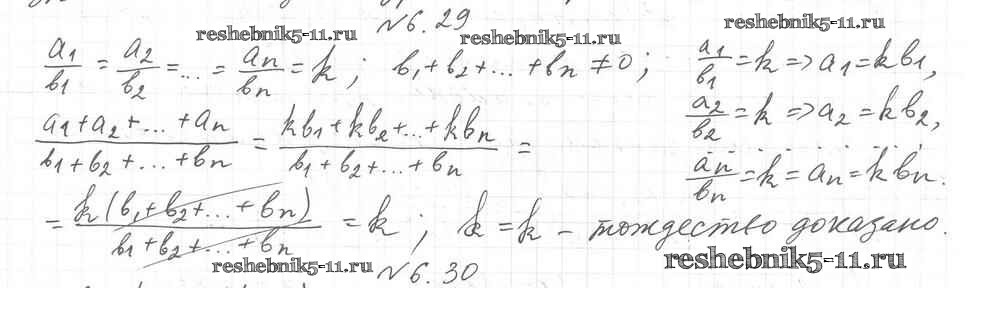 №6.29
reshebnik5-11.ru
reshebnik5-11.ru
reshebnik5-11.ru
a1/b1 = a2/b2 = ... = an/bn = k; b1+b2+...+bn ≠ 0;
a1/b1 = k => a1 = kb1,
a2/b2 = k => a2 = kb2,
.......
an/bn = k = an = kbn.
(a1+a2+...+an)/(b1+b2+...+bn) = (kb1+kb2+...+kbn)/(b1+b2+...+bn) =
= k(b1+b2+...+bn)/(b1+b2+...+bn) = k; k = k – тождество доказано.
reshebnik5-11.ru
reshebnik5-11.ru
№6.30